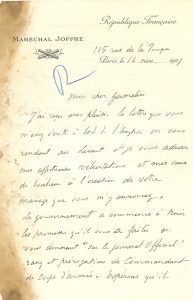 République Française
MARÉCHAL JOFFRE
115 rue de la Pompe
Paris, le 26 nov 1927
R
Mon cher Gamelin
J'ai reçu avec plaisir la lettre que
vous m'avez écrite à bord de l' en vous
rendant au Levant et je vous adresse
mes affectueuses félicitations et mes vœux
de bonheur à l'occasion de votre
mariage que vous m'y annoncez.
Le gouvernement a commencé à tenir
les promesses qu'il vous a faites en
vous donnant "sur le journal Officiel"
rang et prérogatives de Commandant
de corps d'armée. Espérons qu'il